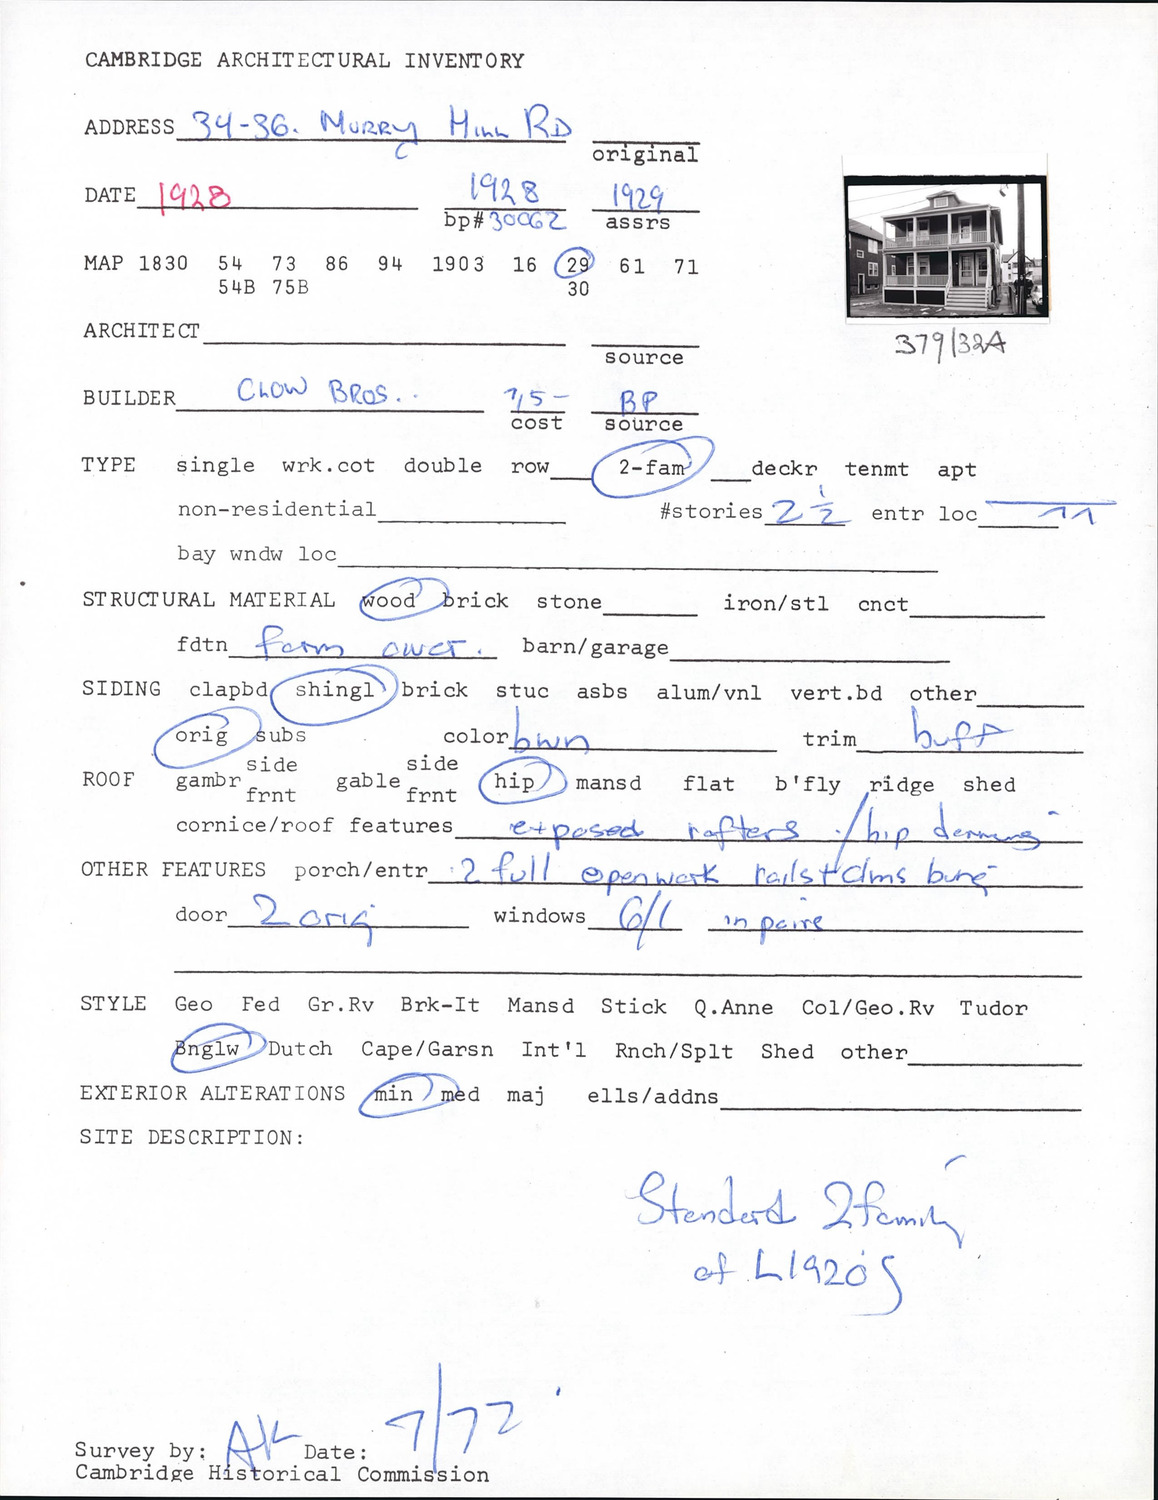 CAMBRIDGE ARCHITECTURAL INVENTORY
ADDRESS 34-36. MURRY HILL RD
original
DATE 1928 1928 1929
bp# 30062 assrs
MAP 1830 54 73 86 94 1903 16 29 61 71
54B 75B 30
ARCHITECT
source
379/32A
BUILDER CHOW BROS. BP
cost source
TYPE single wrk.cot double row 2-fam deckr tenmt apt
non-residential #stories 2 1/2 entr loc
bay wndw loc
STRUCTURAL MATERIAL wood brick stone iron/stl cnct
fdtn barn/garage
SIDING clapbd shingl brick stuc asbs alum/vnl vert.bd other
orig subs color bwn trim buff
ROOF gambr side frnt gable side frnt hip mansd flat b'fly ridge shed
cornice/roof features exposed rafters / hip
OTHER FEATURES porch/entr 2 full openwork rails +
door 2 orig windows 6/1 in pairs
STYLE Geo Fed Gr.Rv Brk-It Mansd Stick Q.Anne Col/Geo.Rv Tudor
Bnglw Dutch Cape/Garsn Int'l Rnch/Splt Shed other
EXTERIOR ALTERATIONS min med maj ells/addns
SITE DESCRIPTION:
Standard 2 family
of L1920s
Survey by: AK Date: 7/72
Cambridge Historical Commission